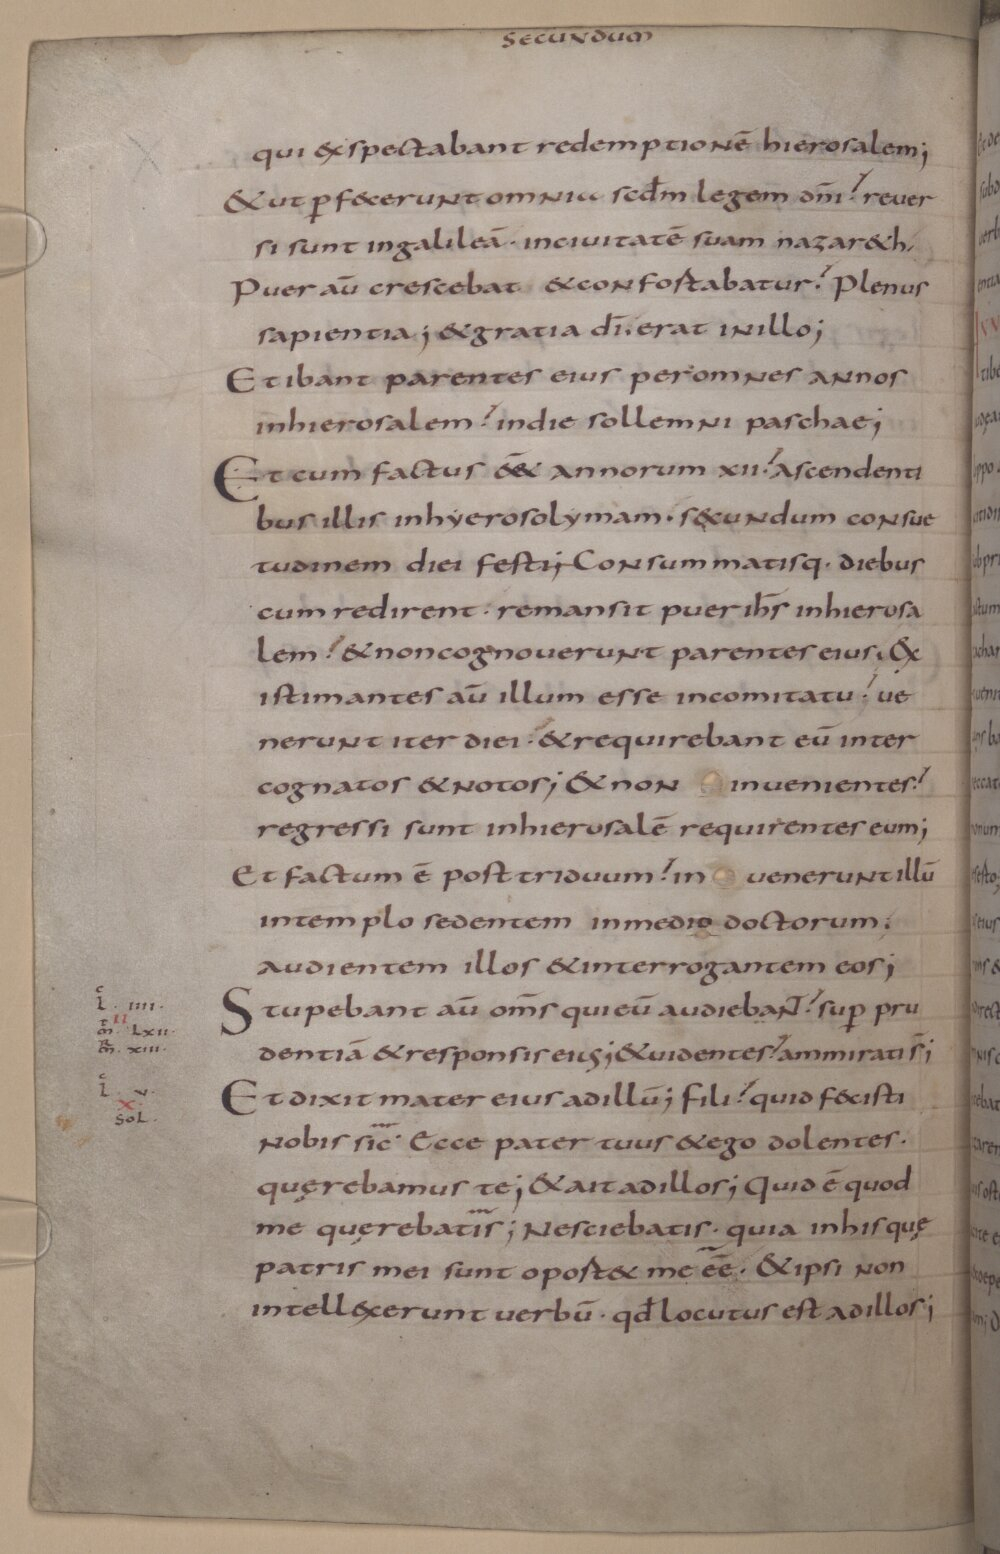 secundum
qui & spectabant redemptionē hierosalem;
& ut ꝑf&cerunt omnia scd̄m legem dn̄i? rever
si sunt in galileā · in civitatē suam nazar&h.
Puer aū crescebat & confortabatur? Plenus
sapientia; & gratia dī. erat in illo;
Et ibant parentes eius per omnes annos
in hierosalem? in die sollemni paschae;
Et cum factus ēēt annorum xii? ascendenti
bus illis in hyerosolymam · s&cundum consue
tudinem diei festi; Consummatisq· diebus
cum redirent · remansit puer ih̄s in hierosa
lem? & non cognoverunt parentes eius; Ex
istimantes aū illum esse in comitatu? ve
nerunt iter diei · & requirebant eū inter
cognatos & notos; & non invenientes?
regressi sunt in hierusalē requirentes eum;
Et factum ē post triduum? in venerunt illū
in templo sedentem in medio doctorum;
audientem illos & interrogantem eos;
Stupebant aū om̄s qui eū audiebant? suꝑ pru
dentiā & responsis eius; & videntes? ammirati s̄;
Et dixit mater eius ad illū; fili? quid f&cisti
nobis sic̄· Ecce pater tuus & ego dolentes·
quęrebamus te; & ait ad illos; Quid ē quod
me quęrebatis; Nesciebatis · quia in his quę
patris mei sunt oport& me ēē· & ipsi non
intellexerunt verbū · qd̄ locutus est ad illos;
c
l · iiii ·
ii
m̄ · lxii ·
m̄ · xiii ·
c
l · v ·
x
sol ·